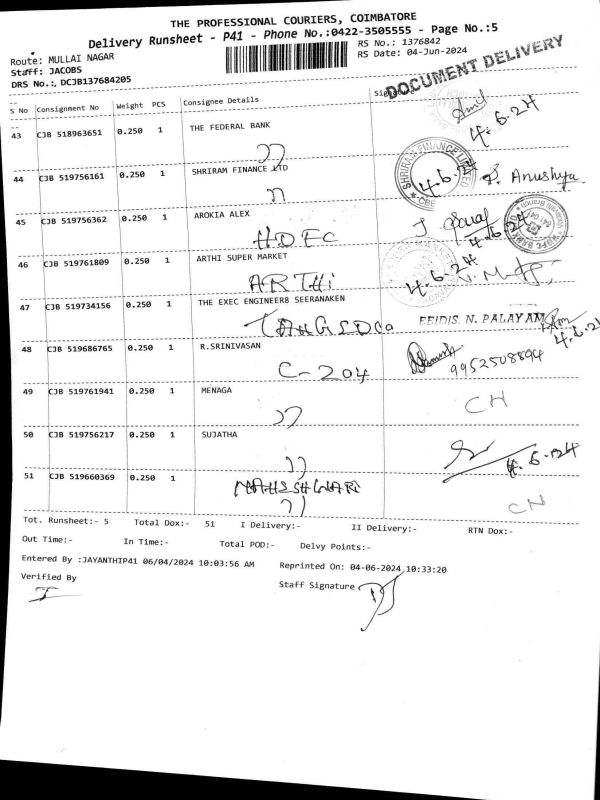 THE PROFESSIONAL COURIERS, COIMBATORE
Delivery Runsheet - P41 - Phone No.:0422-3505555 - Page No.:5
Route: MULLAI NAGAR
RS No.: 1376842
Staff: JACOBS
RS Date: 04-Jun-2024
DRS No.:, DCJB137684205
DOCUMENT DELIVERY
S No Consignment No Weight PCS Consignee Details Signature
43 CJB 518963651 0.250 1 THE FEDERAL BANK
4.6.24
44 CJB 519756161 0.250 1 SHRIRAM FINANCE LTD
SHRIRAM FINANCE LIMITED
CBE
4.6.24 Anushya
45 CJB 519756362 0.250 1 AROKIA ALEX
HDFC
4.6.24
46 CJB 519761809 0.250 1 ARTHI SUPER MARKET
ARTHi
4.6.24
47 CJB 519734156 0.250 1 THE EXEC ENGINEER8 SEERANAKEN
N. PALAYAM
4.6.24
48 CJB 519686765 1 R.SRINIVASAN
C-204
9952508894
49 CJB 519761941 0.250 1 MENAGA
CH
50 CJB 519756217 0.250 1 SUJATHA
4.6.24
51 CJB 519660369 0.250 1 MAHESHWARI
Tot. Runsheet:- 5 Total Dox:- 51 I Delivery:- II Delivery:- RTN Dox:-
Out Time:- In Time:- Total POD:- Delvy Points:-
Entered By :JAYANTHIP41 06/04/2024 10:03:56 AM Reprinted On: 04-06-2024 10:33:20
Verified By Staff Signature